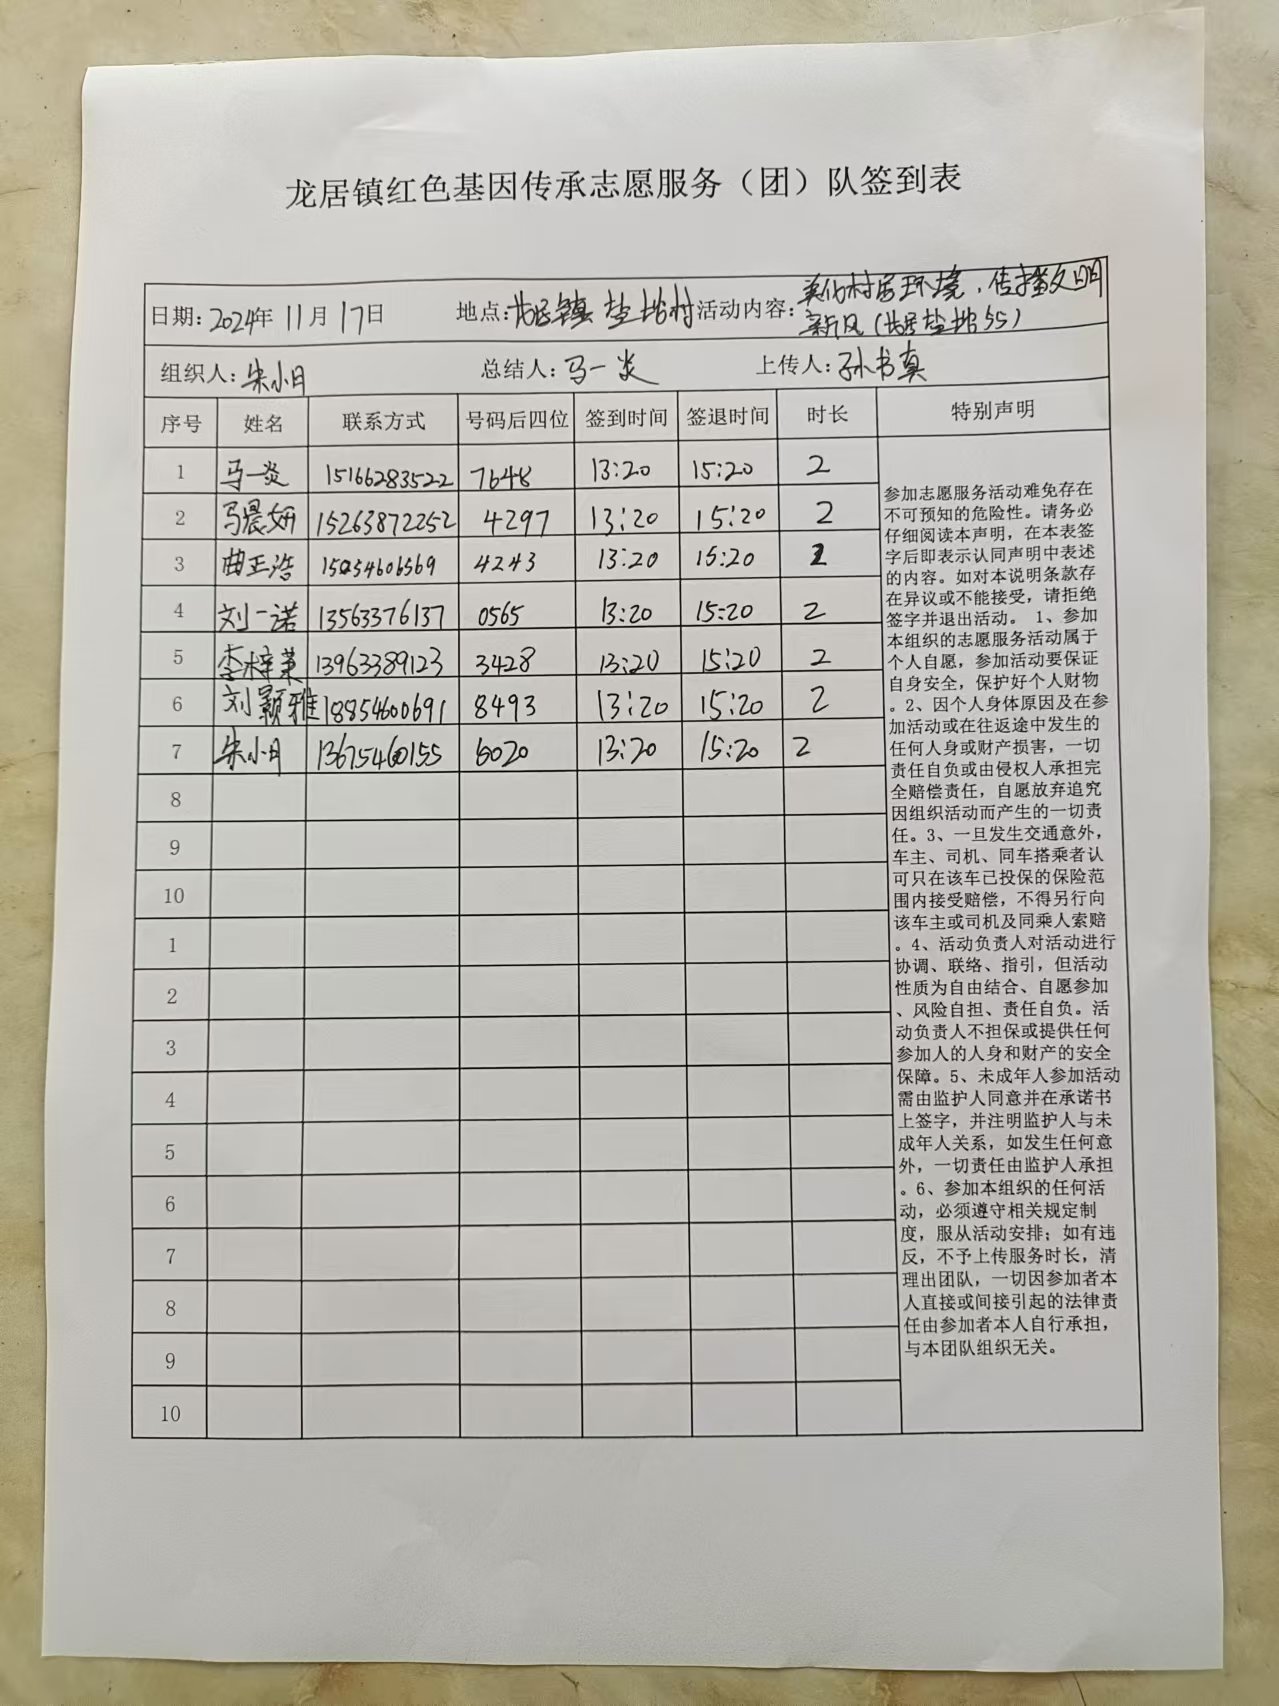 龙居镇红色基因传承志愿服务（团）队签到表
日期：2024年 11月 17日 地点：龙居镇 盐坨村 活动内容：美化村居环境，传播文明
新风（龙居盐坨55）
组织人：朱小月 总结人：马一炎 上传人：孙书真
序号 姓名 联系方式 号码后四位 签到时间 签退时间 时长 特别声明
1 马一炎 15166283522 7648 13:20 15:20 2
2 马晨妍 15263872252 4297 13:20 15:20 2
3 曲正浩 15254606569 4243 13:20 15:20 2
4 刘一诺 13563376137 0565 13:20 15:20 2
5 李梓菓 13963389123 3428 13:20 15:20 2
6 刘颖雅 18854600691 8493 13:20 15:20 2
7 朱小月 13675460155 6020 13:20 15:20 2
8
9
10
1
2
3
4
5
6
7
8
9
10
参加志愿服务活动难免存在
不可预知的危险性。请务必
仔细阅读本声明，在本表签
字后即表示认同声明中表述
的内容。如对本说明条款存
在异议或不能接受，请拒绝
签字并退出活动。 1、参加
本组织的志愿服务活动属于
个人自愿，参加活动要保证
自身安全，保护好个人财物
。2、因个人身体原因及在参
加活动或在往返途中发生的
任何人身或财产损害，一切
责任自负或由侵权人承担完
全赔偿责任，自愿放弃追究
因组织活动而产生的一切责
任。3、一旦发生交通意外，
车主、司机、同车搭乘者认
可只在该车已投保的保险范
围内接受赔偿，不得另行向
该车主或司机及同乘人索赔
。4、活动负责人对活动进行
协调、联络、指引，但活动
性质为自由结合、自愿参加
、风险自担、责任自负。活
动负责人不担保或提供任何
参加人的人身和财产的安全
保障。5、未成年人参加活动
需由监护人同意并在承诺书
上签字，并注明监护人与未
成年人关系，如发生任何意
外，一切责任由监护人承担
。6、参加本组织的任何活
动，必须遵守相关规定制
度，服从活动安排；如有违
反，不予上传服务时长，清
理出团队，一切因参加者本
人直接或间接引起的法律责
任由参加者本人自行承担，
与本团队组织无关。